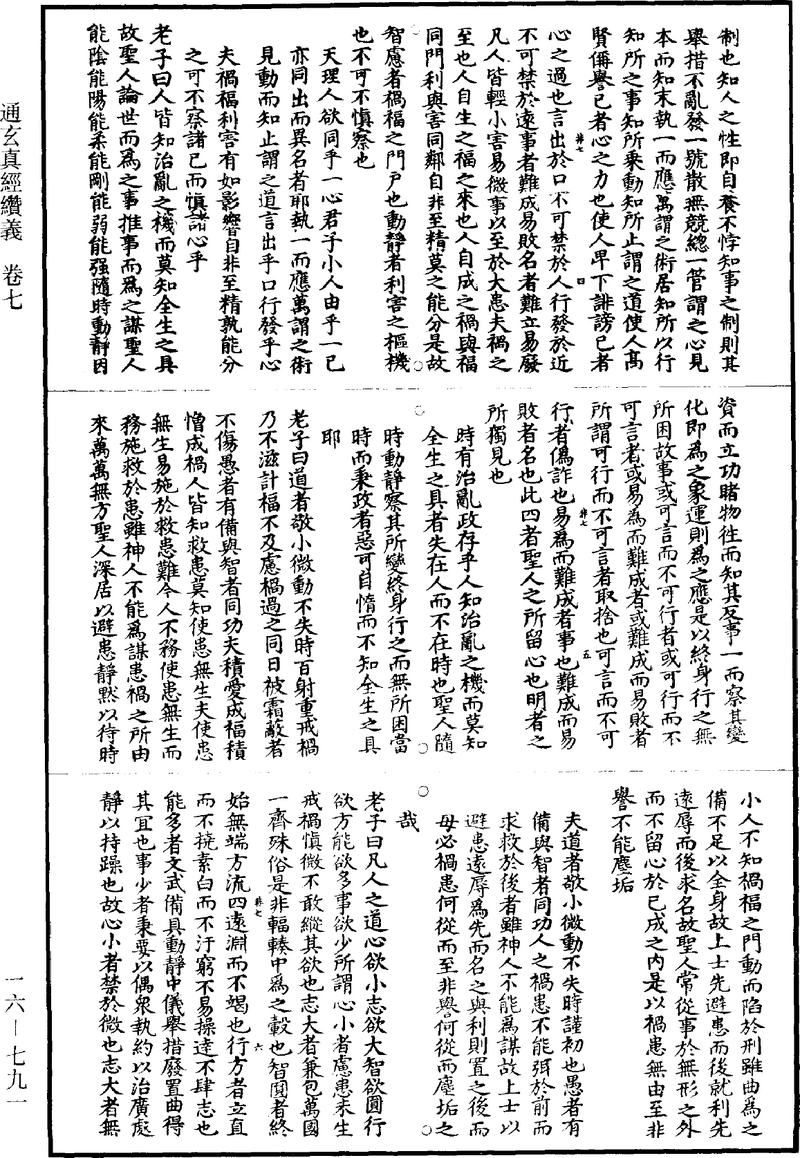 通玄真經纘義　卷七
一六—七九一
制也知人之性即自養不悖知事之制則其
舉措不亂發一號散無競總一管謂之心見
本而知末執一而應萬謂之術居知所以行
知所之事知所乘動知所止謂之道使人高
賢偁譽已者心之力也使人卑下誹謗已者
心之過也言出於口不可禁於人行發於近
不可禁於遠事者難成易敗名者難立易廢
凡人皆輕小害易微事以至於大患夫禍之
至也人自生之福之來也人自成之禍與福
同門利與害同鄰自非至精莫之能分是故
智慮者禍福之門戶也動靜者利害之樞機
也不可不慎察也
天理人欲同乎一心君子小人由乎一已
亦同出而異名者耶執一而應萬謂之術
見動而知止謂之道言出乎口行發乎心
夫禍福利害有如影響自非至精孰能分
之可不察諸已而慎諸心乎
老子曰人皆知治亂之機而莫知全生之具
故聖人論世而為之事推事而為之謀聖人
能陰能陽能柔能剛能弱能强隨時動靜因
資而立功睹物往而知其反事一而察其變
化即為之象運則為之應是以終身行之無
所困故事或可言而不可行者或可行而不
可言者或易為而難成者或難成而易敗者
所謂可行而不可言者取捨也可言而不可
行者偽詐也易為而難成者事也難成而易
敗者名也此四者聖人之所留心也明者之
所獨見也
時有治亂政存乎人知治亂之機而莫知
全生之具者失在人而不在時也聖人隨
時動靜察其所變終身行之而無所困當
時而秉政者惡可自惰而不知全生之具
耶
老子曰道者敬小微動不失時百射重戒禍
乃不滋計福不及慮禍過之同日被霜蔽者
不傷愚者有備與智者同功夫積愛成福積
憎成禍人皆知救患莫知使患無生夫使患
無生易施於救患難今人不務使患無生而
務施救於患雖神人不能為謀患禍之所由
來萬萬無方聖人深居以避患靜默以待時
小人不知禍福之門動而陷於刑雖曲為之
備不足以全身故上士先避患而後就利先
遠辱而後求名故聖人常從事於無形之外
而不留心於已成之內是以禍患無由至非
譽不能塵垢
夫道者敬小微動不失時謹初也愚者有
備與智者同功人之禍患不能弭於前而
求救於後者雖神人不能為謀故上士以
避患遠辱為先而名之與利則置之後而
毋必禍患何從而至非譽何從而塵垢之
哉
老子曰凡人之道心欲小志欲大智欲圓行
欲方能欲多事欲少所謂心小者慮患未生
戒禍慎微不敢縱其欲也志大者兼包萬國
一齊殊俗是非輻輳中為之轂也智圓者終
始無端方流四遠淵而不竭也行方者立直
而不撓素白而不汙窮不易操達不肆志也
能多者文武備具動靜中儀舉措廢置曲得
其宜也事少者秉要以偶衆執約以治廣處
靜以持躁也故心小者禁於微也志大者無